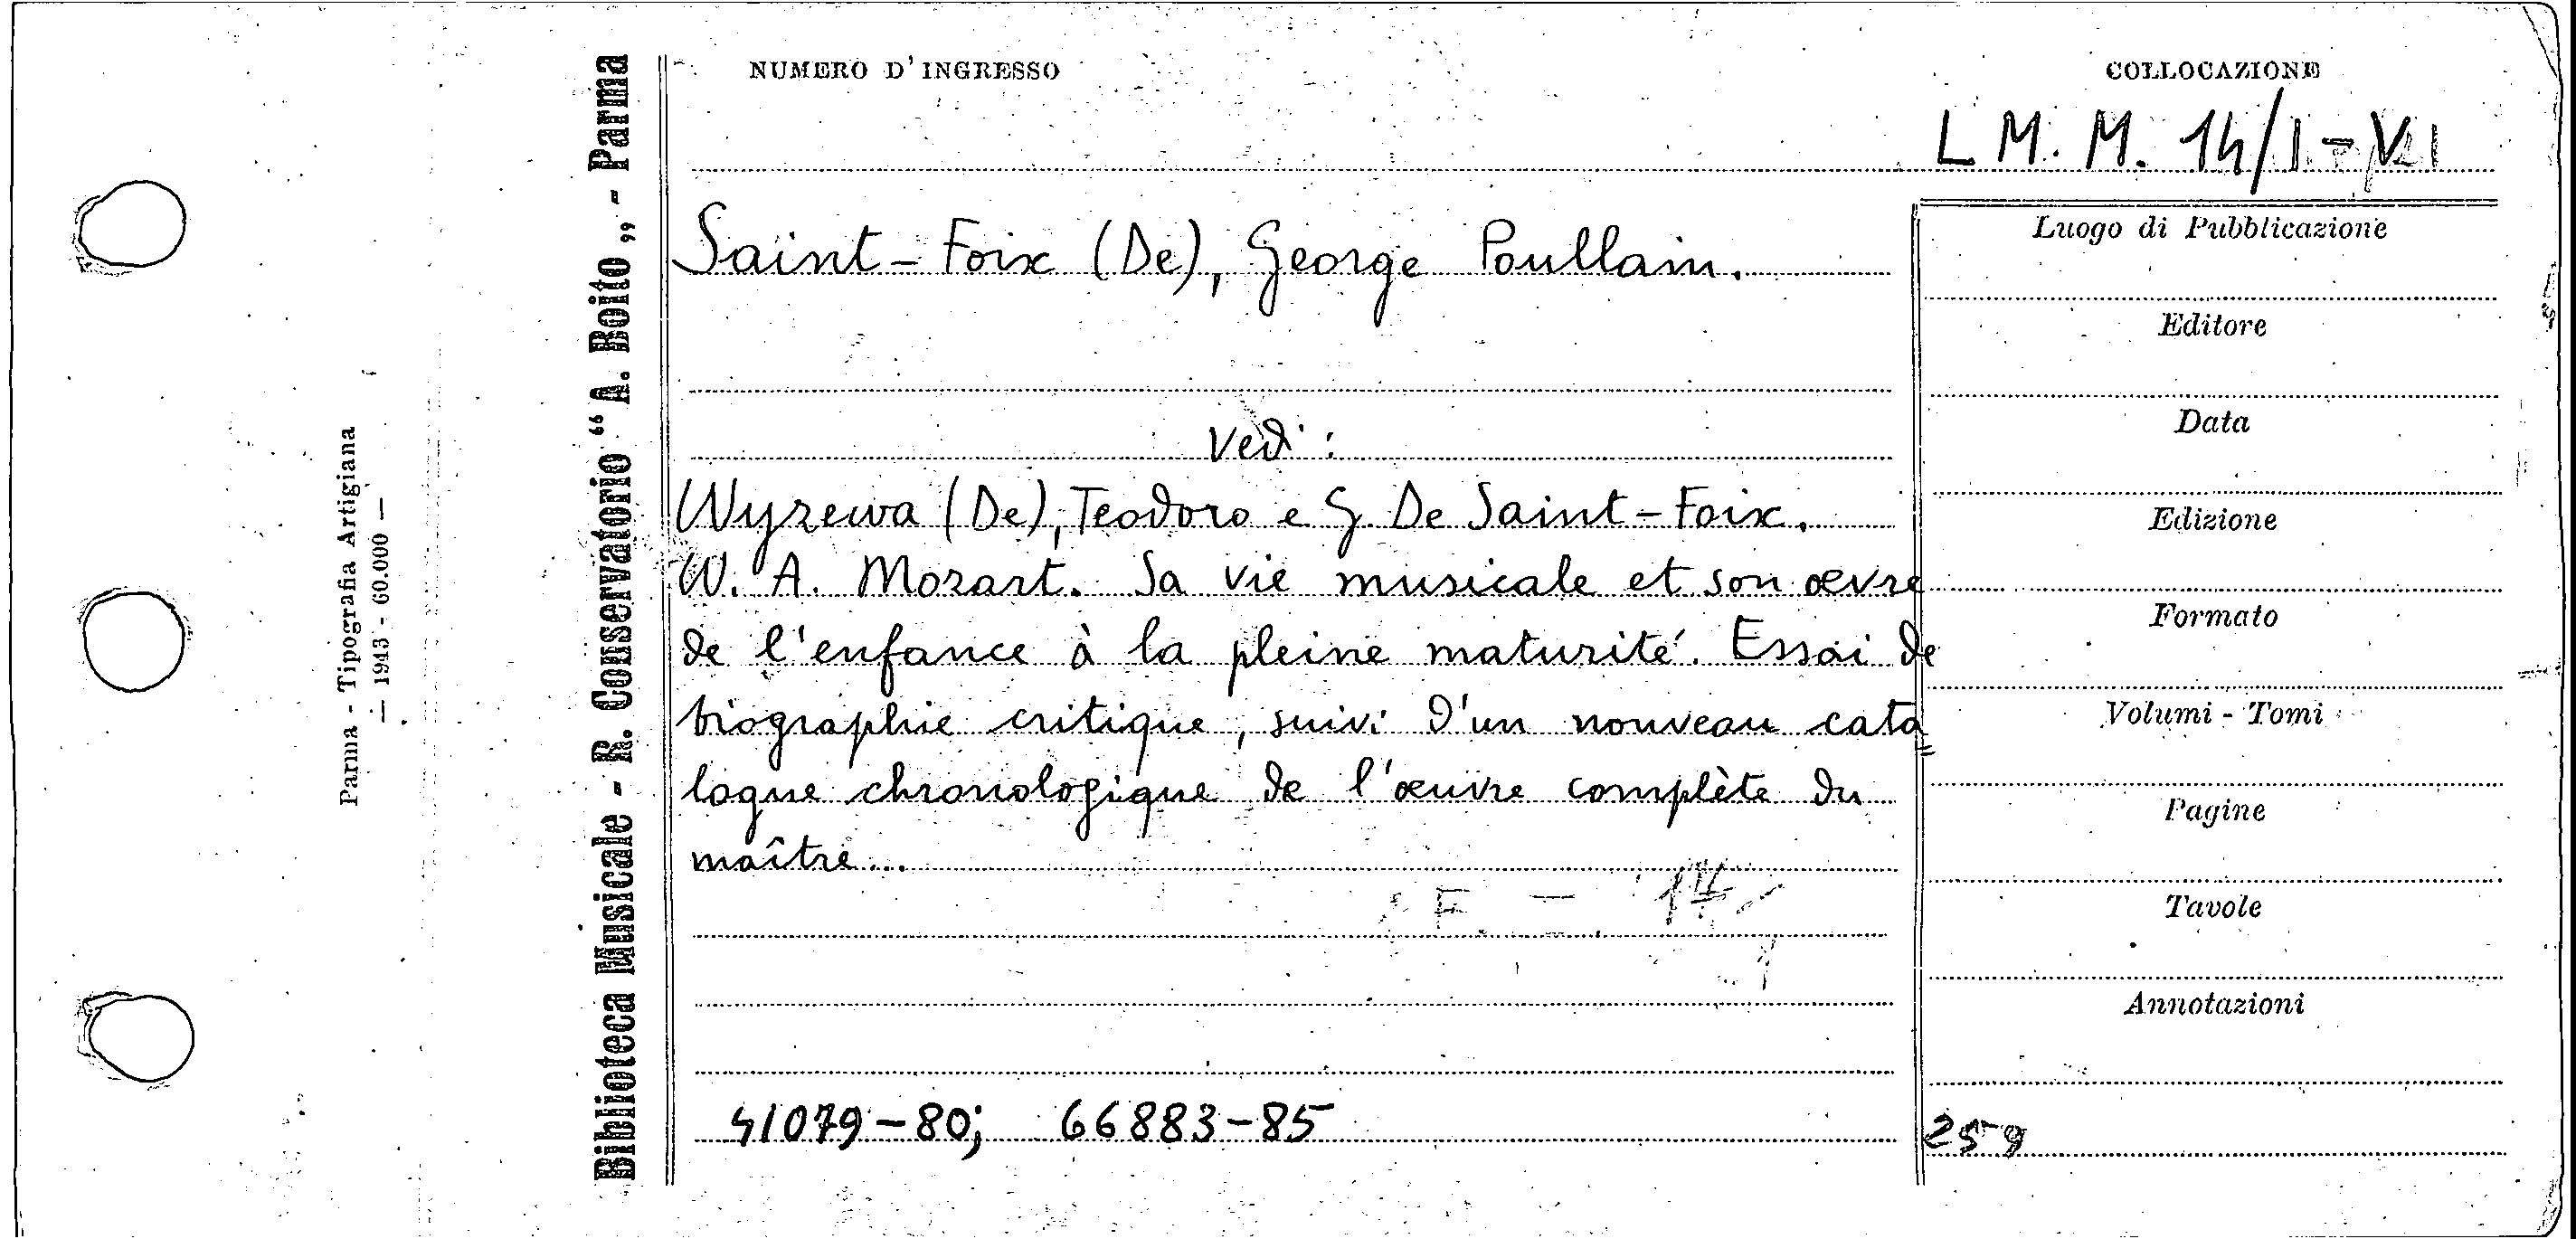 NUMERO D'INGRESSO
COLLOCAZIONE
L M. M. 14/I-
Saint-Foix (De), George Poullain.
Vedi:
Wyzewa (De), Teodoro e G. De Saint-Foix.
W. A. Mozart. Sa vie musicale et son œvre
de l'enfance à la pleine maturité. Essai de
biographie critique, suivi d'un nouveau cata=
logue chronologique de l'œuvre complète du
maître...
41079-80; 66883-85
Luogo di Pubblicazione
Editore
Data
Edizione
Formato
Volumi - Tomi
Pagine
Tavole
Annotazioni
259
Biblioteca Musicale - R. Conservatorio “A. Boito„ - Parma
Parma - Tipografia Artigiana
— 1943 - 60.000 —